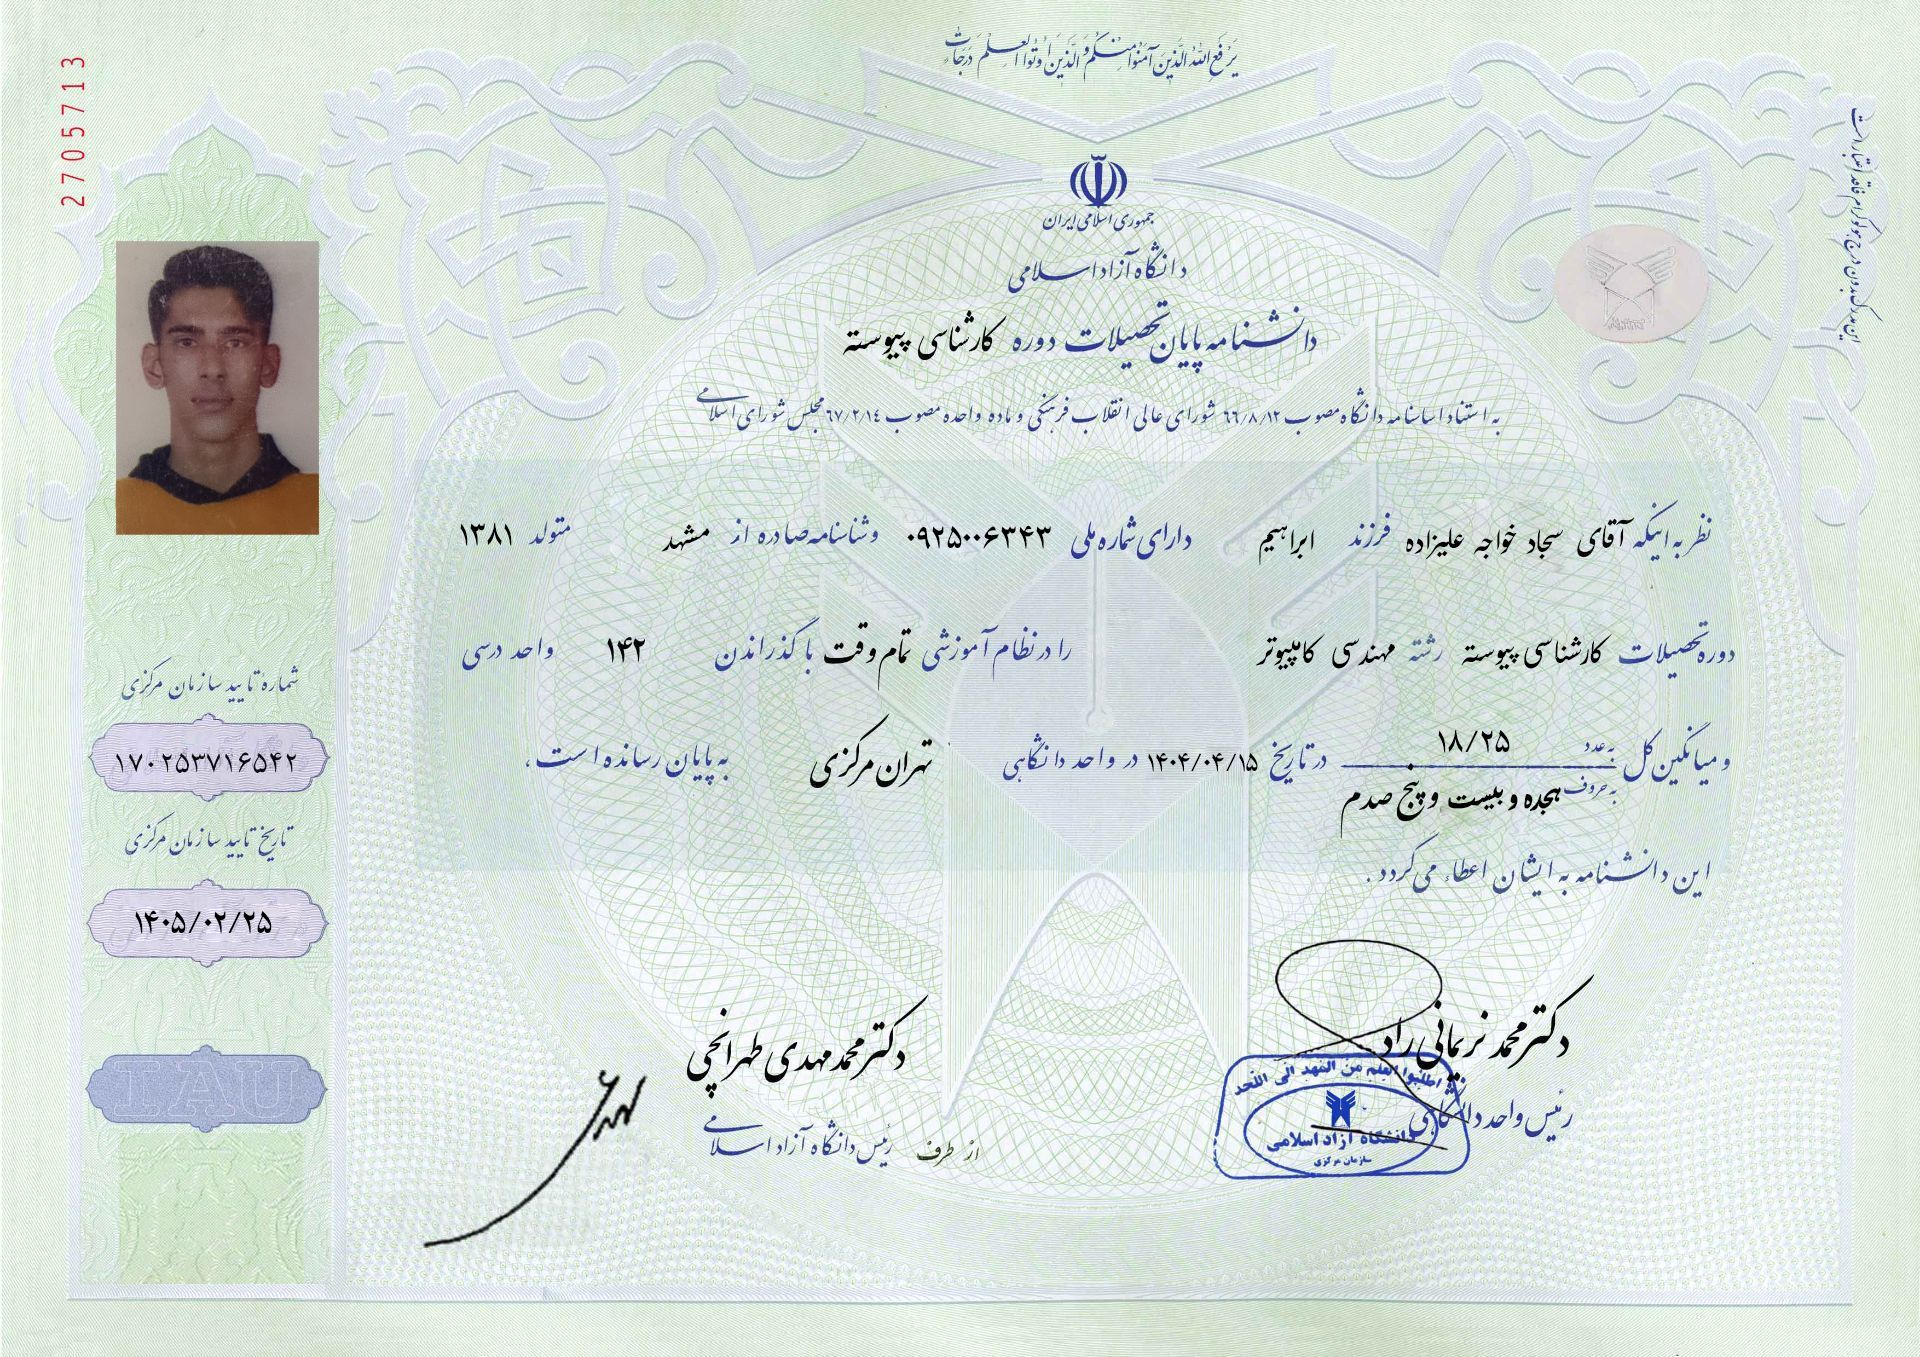 یَرْفَعِ اللهُ الَّذینَ آمَنُوا مِنْکُمْ وَ الَّذینَ اُوتُوا الْعِلْمَ دَرَجاتٍ
2705713
این مدرک بدون درج هولوگرام فاقد اعتبار است
جمهوری اسلامی ایران
دانشگاه آزاد اسلامی
دانشنامه پایان تحصیلات دوره کارشناسی پیوسته
به استناد اساسنامه دانشگاه مصوب ٦٦/٨/١٢ شورای عالی انقلاب فرهنگی و ماده واحده مصوب ٦٧/٢/١٤ مجلس شورای اسلامی
نظر به اینکه آقای سجاد خواجه علیزاده فرزند ابراهیم دارای شماره ملی ۰۹۲۵۰۰۶۳۴۳ و شناسنامه صادره از مشهد متولد ۱۳۸۱
دوره تحصیلات کارشناسی پیوسته رشته مهندسی کامپیوتر را در نظام آموزشی تمام وقت با گذراندن ۱۴۲ واحد درسی
و میانگین کل به عدد ۱۸/۲۵ در تاریخ ۱۴۰۴/۰۴/۱۵ در واحد دانشگاهی تهران مرکزی به پایان رسانده است.
به حروف هجده و بیست و پنج صدم
این دانشنامه به ایشان اعطاء می‌گردد.
شماره تایید سازمان مرکزی
۱۷۰۲۵۳۷۱۶۵۴۲
تاریخ تایید سازمان مرکزی
۱۴۰۵/۰۲/۲۵
IAU
دکتر محمد نریمانی راد
رئیس واحد دانشگاهی
اطلبوا العلم من المهد الی اللحد
دانشگاه آزاد اسلامی
سازمان مرکزی
دکتر محمد مهدی طهرانچی
از طرف رئیس دانشگاه آزاد اسلامی